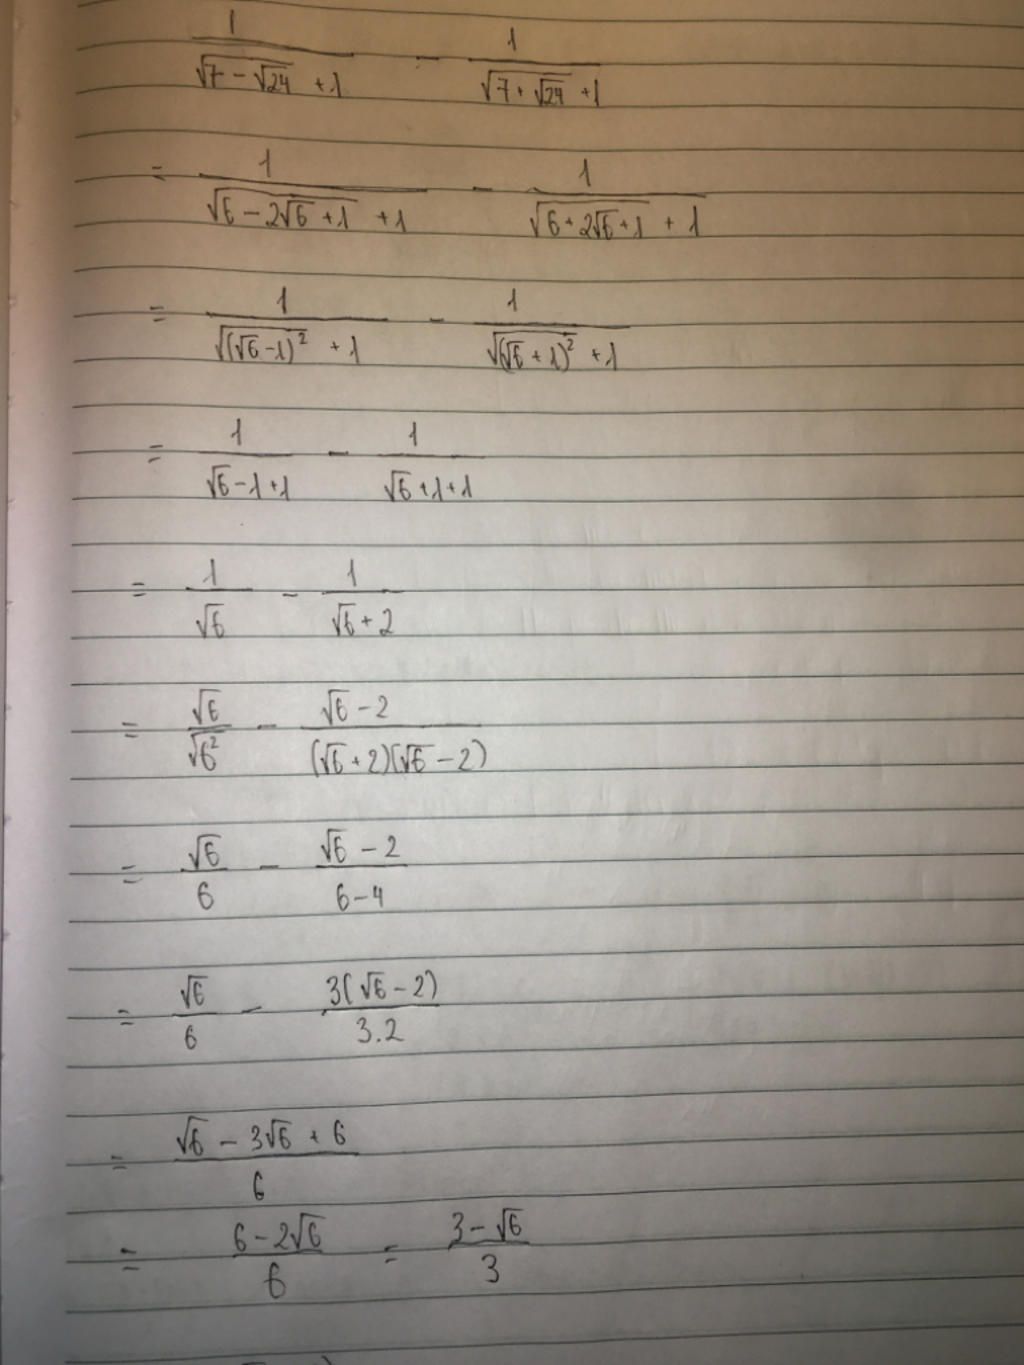 1/(√(7 - √24) + 1) - 1/(√(7 + √24) + 1)
= 1/(√(6 - 2√6 + 1) + 1) - 1/(√(6 + 2√6 + 1) + 1)
= 1/(√((√6 - 1)²) + 1) - 1/(√((√6 + 1)²) + 1)
= 1/(√6 - 1 + 1) - 1/(√6 + 1 + 1)
= 1/√6 - 1/(√6 + 2)
= √6/√6² - (√6 - 2)/((√6 + 2)(√6 - 2))
= √6/6 - (√6 - 2)/(6 - 4)
= √6/6 - 3(√6 - 2)/(3.2)
= (√6 - 3√6 + 6)/6
= (6 - 2√6)/6 = (3 - √6)/3